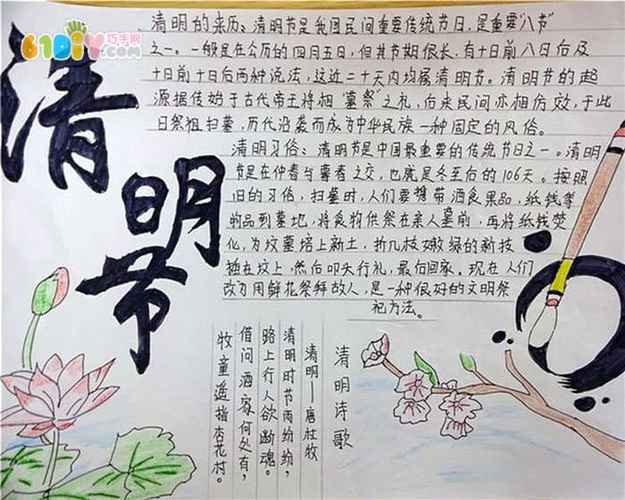 61DIY巧手网
清明节
清明的来历：清明节是我国民间重要传统节日，是重要"八节"
之一。一般是在公历的四月五日，但其节期很长，有十日前八日后及
十日前十日后两种说法，这近二十天内均属清明节。清明节的起
源据传始于古代帝王将相"墓祭"之礼，后来民间亦相仿效，于此
日祭祖扫墓，历代沿袭而成为中华民族一种固定的风俗。
清明习俗：清明节是中国最重要的传统节日之一。清明
节是在仲春与暮春之交，也就是冬至后的106天。按照
旧的习俗，扫墓时，人们要携带酒食果品，纸钱等
物品到墓地，将食物供祭在亲人墓前，再将纸钱焚
化，为坟墓培上新土，折几枝嫩绿的新枝
插在坟上，然后叩头行礼，最后回家。现在人们
改为用鲜花祭拜故人，是一种很好的文明祭
祀方法。
清明诗歌
清明——唐杜牧
清明时节雨纷纷，
路上行人欲断魂。
借问酒家何处有，
牧童遥指杏花村。